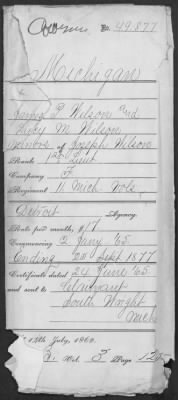 No. 49.877
Michigan
P. Wilson and
M. Wilson
Minors of Joseph Wilson
Rank 1st Lieut
Company F
Regiment 11 Mich Vols.
Detroit Agency.
Rate per month, $17
Commencing 2 Jany '65
Ending 2d Sept 1877
Certificate dated 24 June '65
and sent to
South Wright
Mich
14th July, 1862.
Vol. 3 Page 12